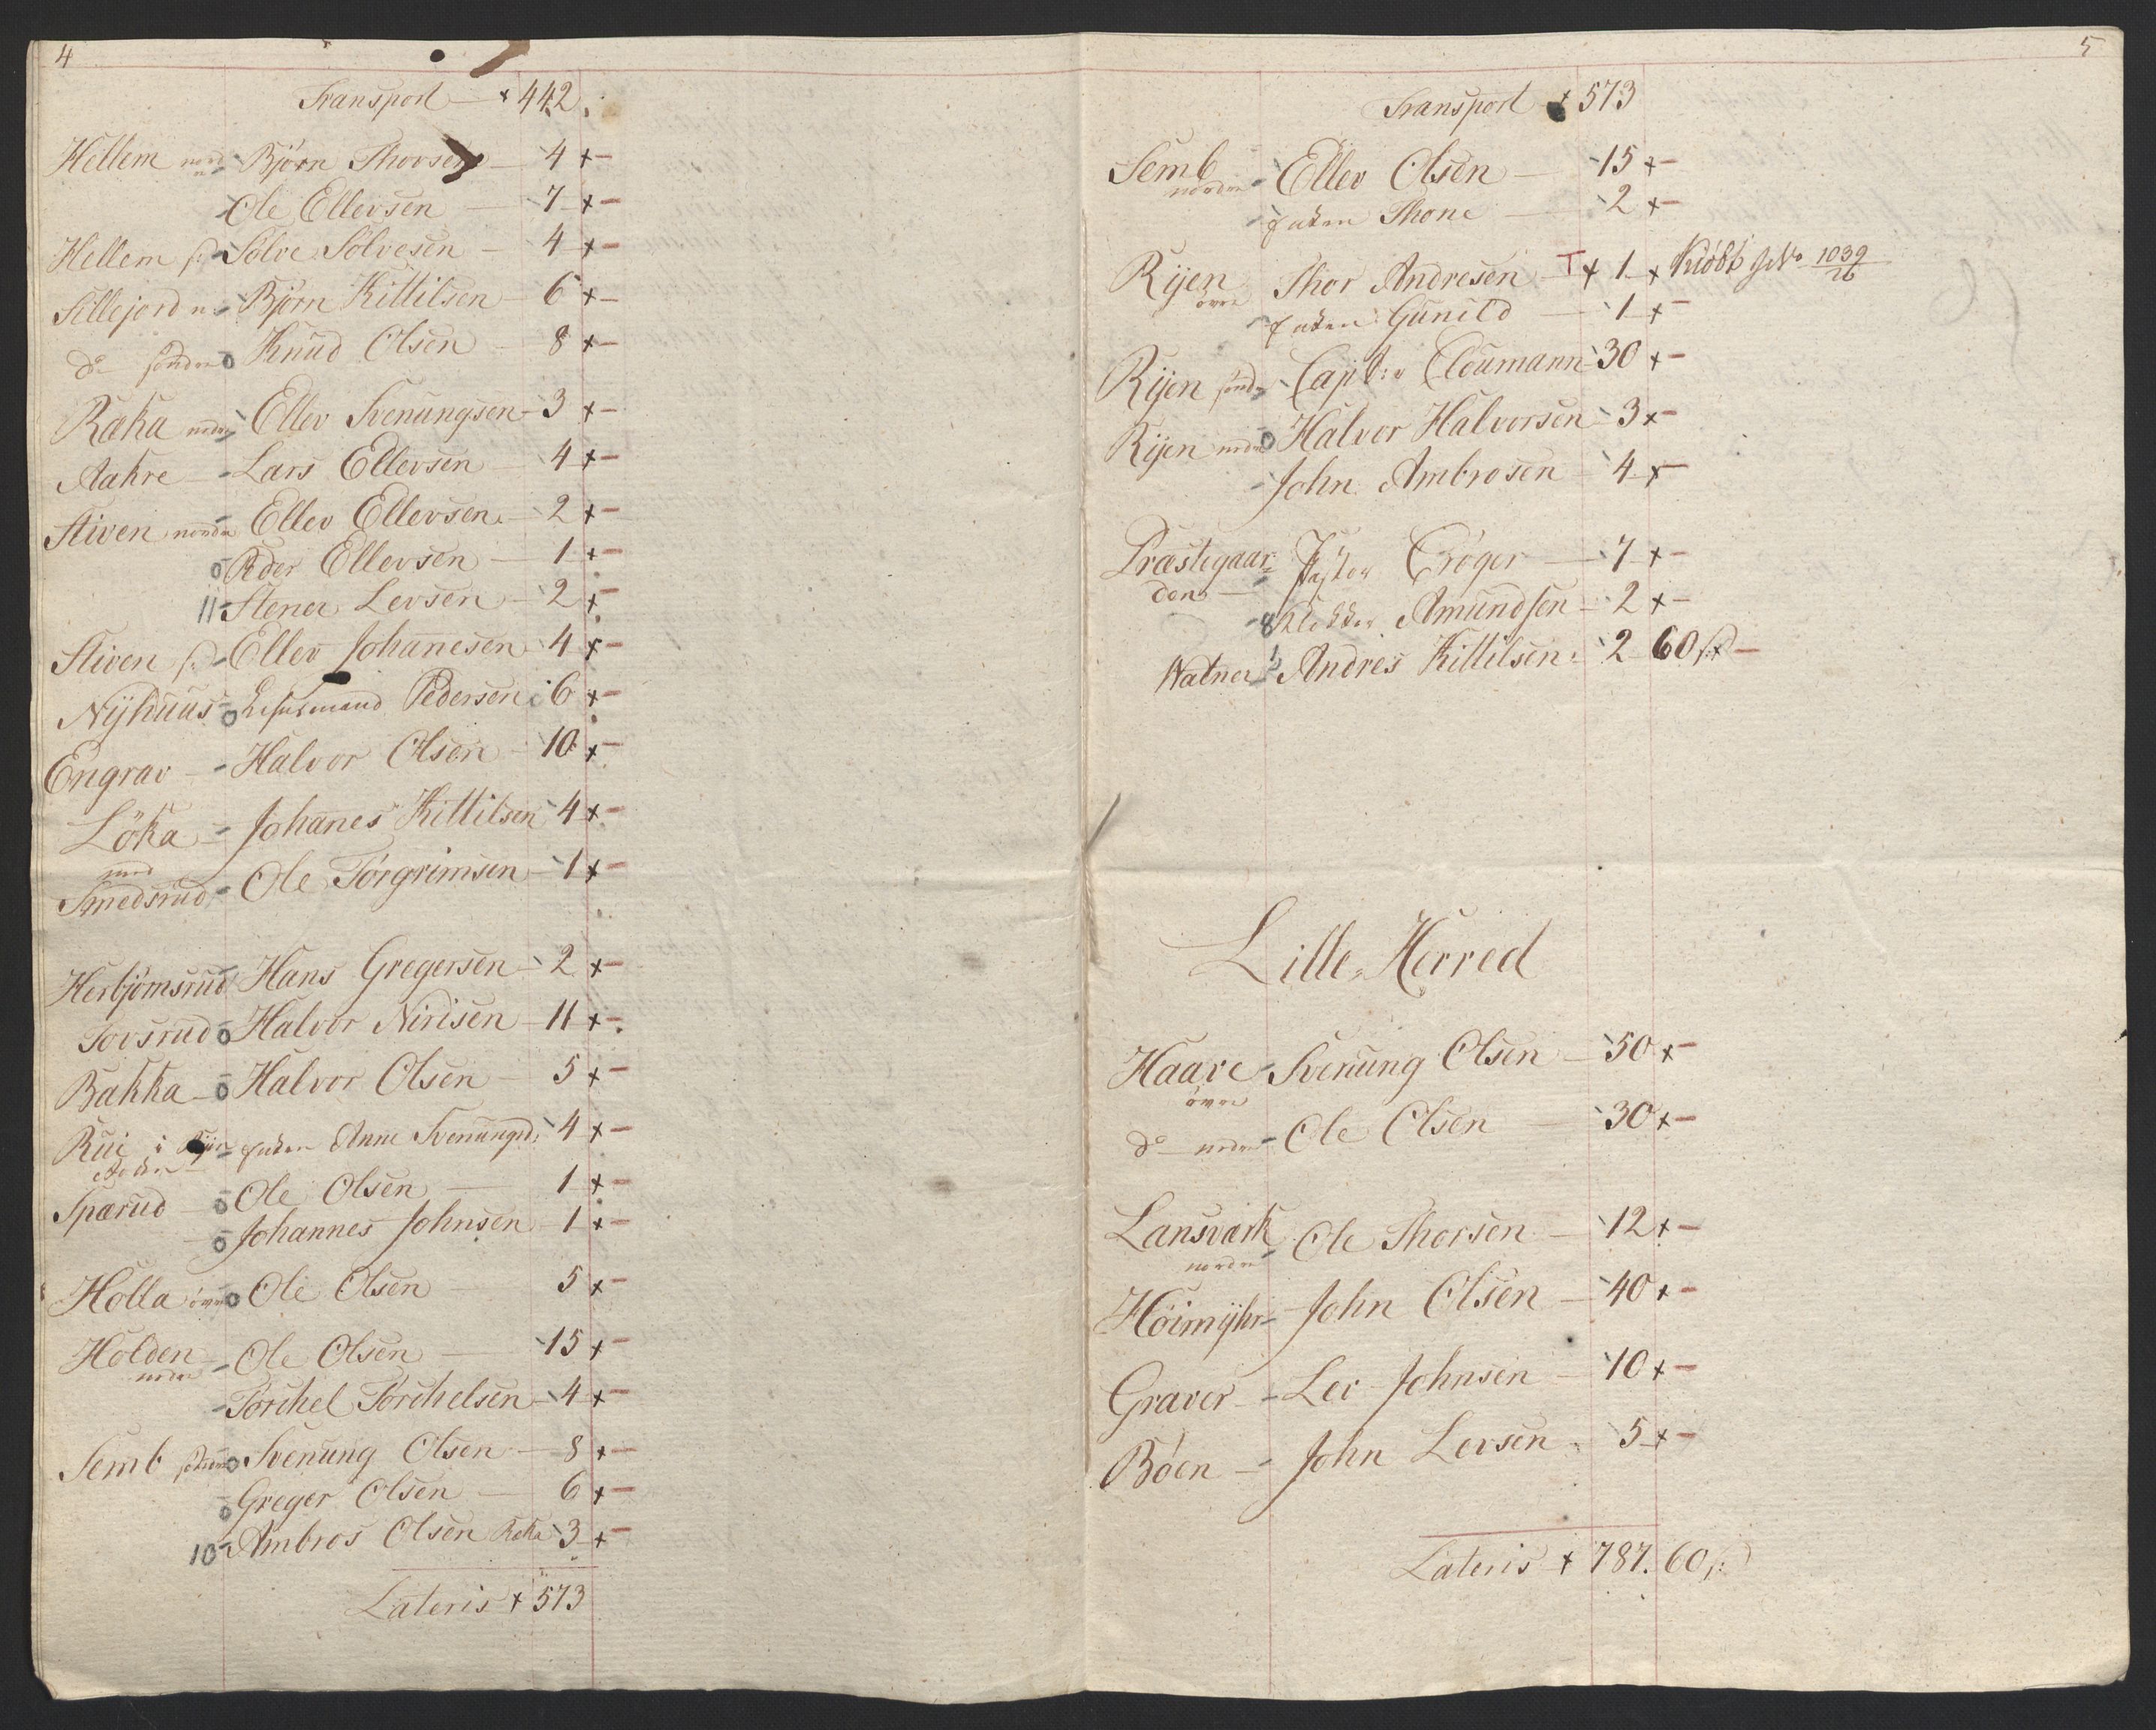 4
Transport + 442
Hellem nord Bjørn Thorsen 4 x
Ole Ellevsen 7 x
Hellem s: Solve Solvesen 4 x
Sillejord n: Bjørn Kittilsen 6 x
do søndre o Knud Olsen 8 x
Ræka nedre Ellev Svenungsen 3 x
Aakre Lars Ellevsen 4 x
Stiven nordre Ellev Ellevsen 2 x
o Peder Ellevsen 1 x
11 Stener Levsen 2 x
Stiven s: Ellev Johanesen 4 x
Nyhuus o Lehnsmand Pedersen 6 x
Engrav Halvor Olsen 10 x
Löka Johanes Kittilsen 4 x
Smedsrud Ole Torgrimsen 1 x
Herbjörnsrud Hans Gregersen 2 x
Tovsrud o Halvor Nirisen 11 x
Bakka o Halvor Olsen 5 x
Rui i Enken Anne Svenungsd: 4 x
Spærud o Ole Olsen 1 x
o Johannes Johnsen 1 x
Holla övre o Ole Olsen 5 x
Holden Ole Olsen 15 x
nedre
Torchel Torchelsen 4 x
Semb søndre o Svenung Olsen 8 x
o Greger Olsen 6 x
10 Ambros Olsen Ræka 3 x
Lateris + 573
5
Transport + 573
Semb Ellev Olsen 15 x
nordre
Enken Thone 2 x
Ryen Thor Andresen T x 1 x Kiöbt No 1039/26
övre
Enken Gunild 1 x
Ryen sönd: Capt:n Cloumann 30 x
Ryen nedre o Halvor Halvorsen 3 x
John Ambrosen 4 x
Præstegaar= Pastor Crøger 7 x
den
8 Klokker Amundsen 2 x
Watner Andres Kittilsen 2 60 s x
Lille Herred
Haave Svenung Olsen 50 x
övre
do nedre Ole Olsen 30 x
Lansværk Ole Thorsen 12 x
nordre
Höimyhr John Olsen 40 x
Graver Lev Johnsen 10 x
Böen John Levsen 5 x
Lateris + 787. 60 s: